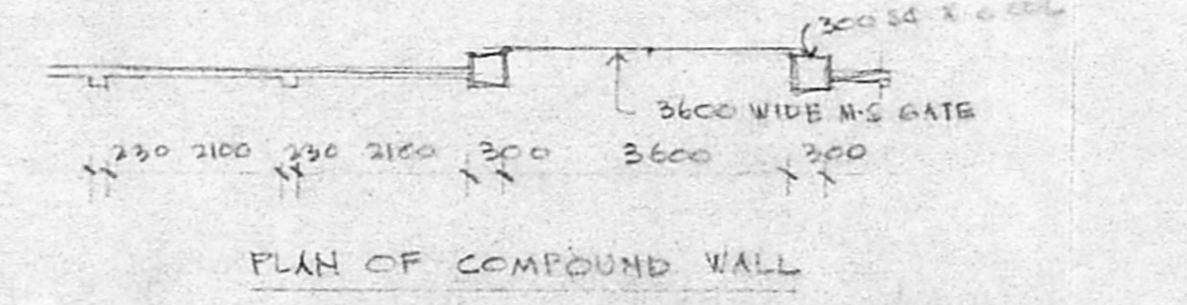 300 SQ X
3600 WIDE M.S GATE
230 2100 230 2100 300 3600 300
PLAN OF COMPOUND WALL